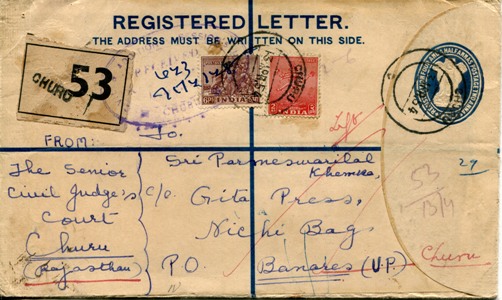 REGISTERED LETTER.
THE ADDRESS MUST BE WRITTEN ON THIS SIDE.
CHURU
53
INDIA
INDIA
FROM:
To:
The Senior
Civil Judge's
Court
Churu
(Rajasthan)
Sri Parmeswarilal
Khemka,
C/o. Gita Press,
Nichi Bag
P.O. Banares (U.P.)
53
13/4
27
Churu